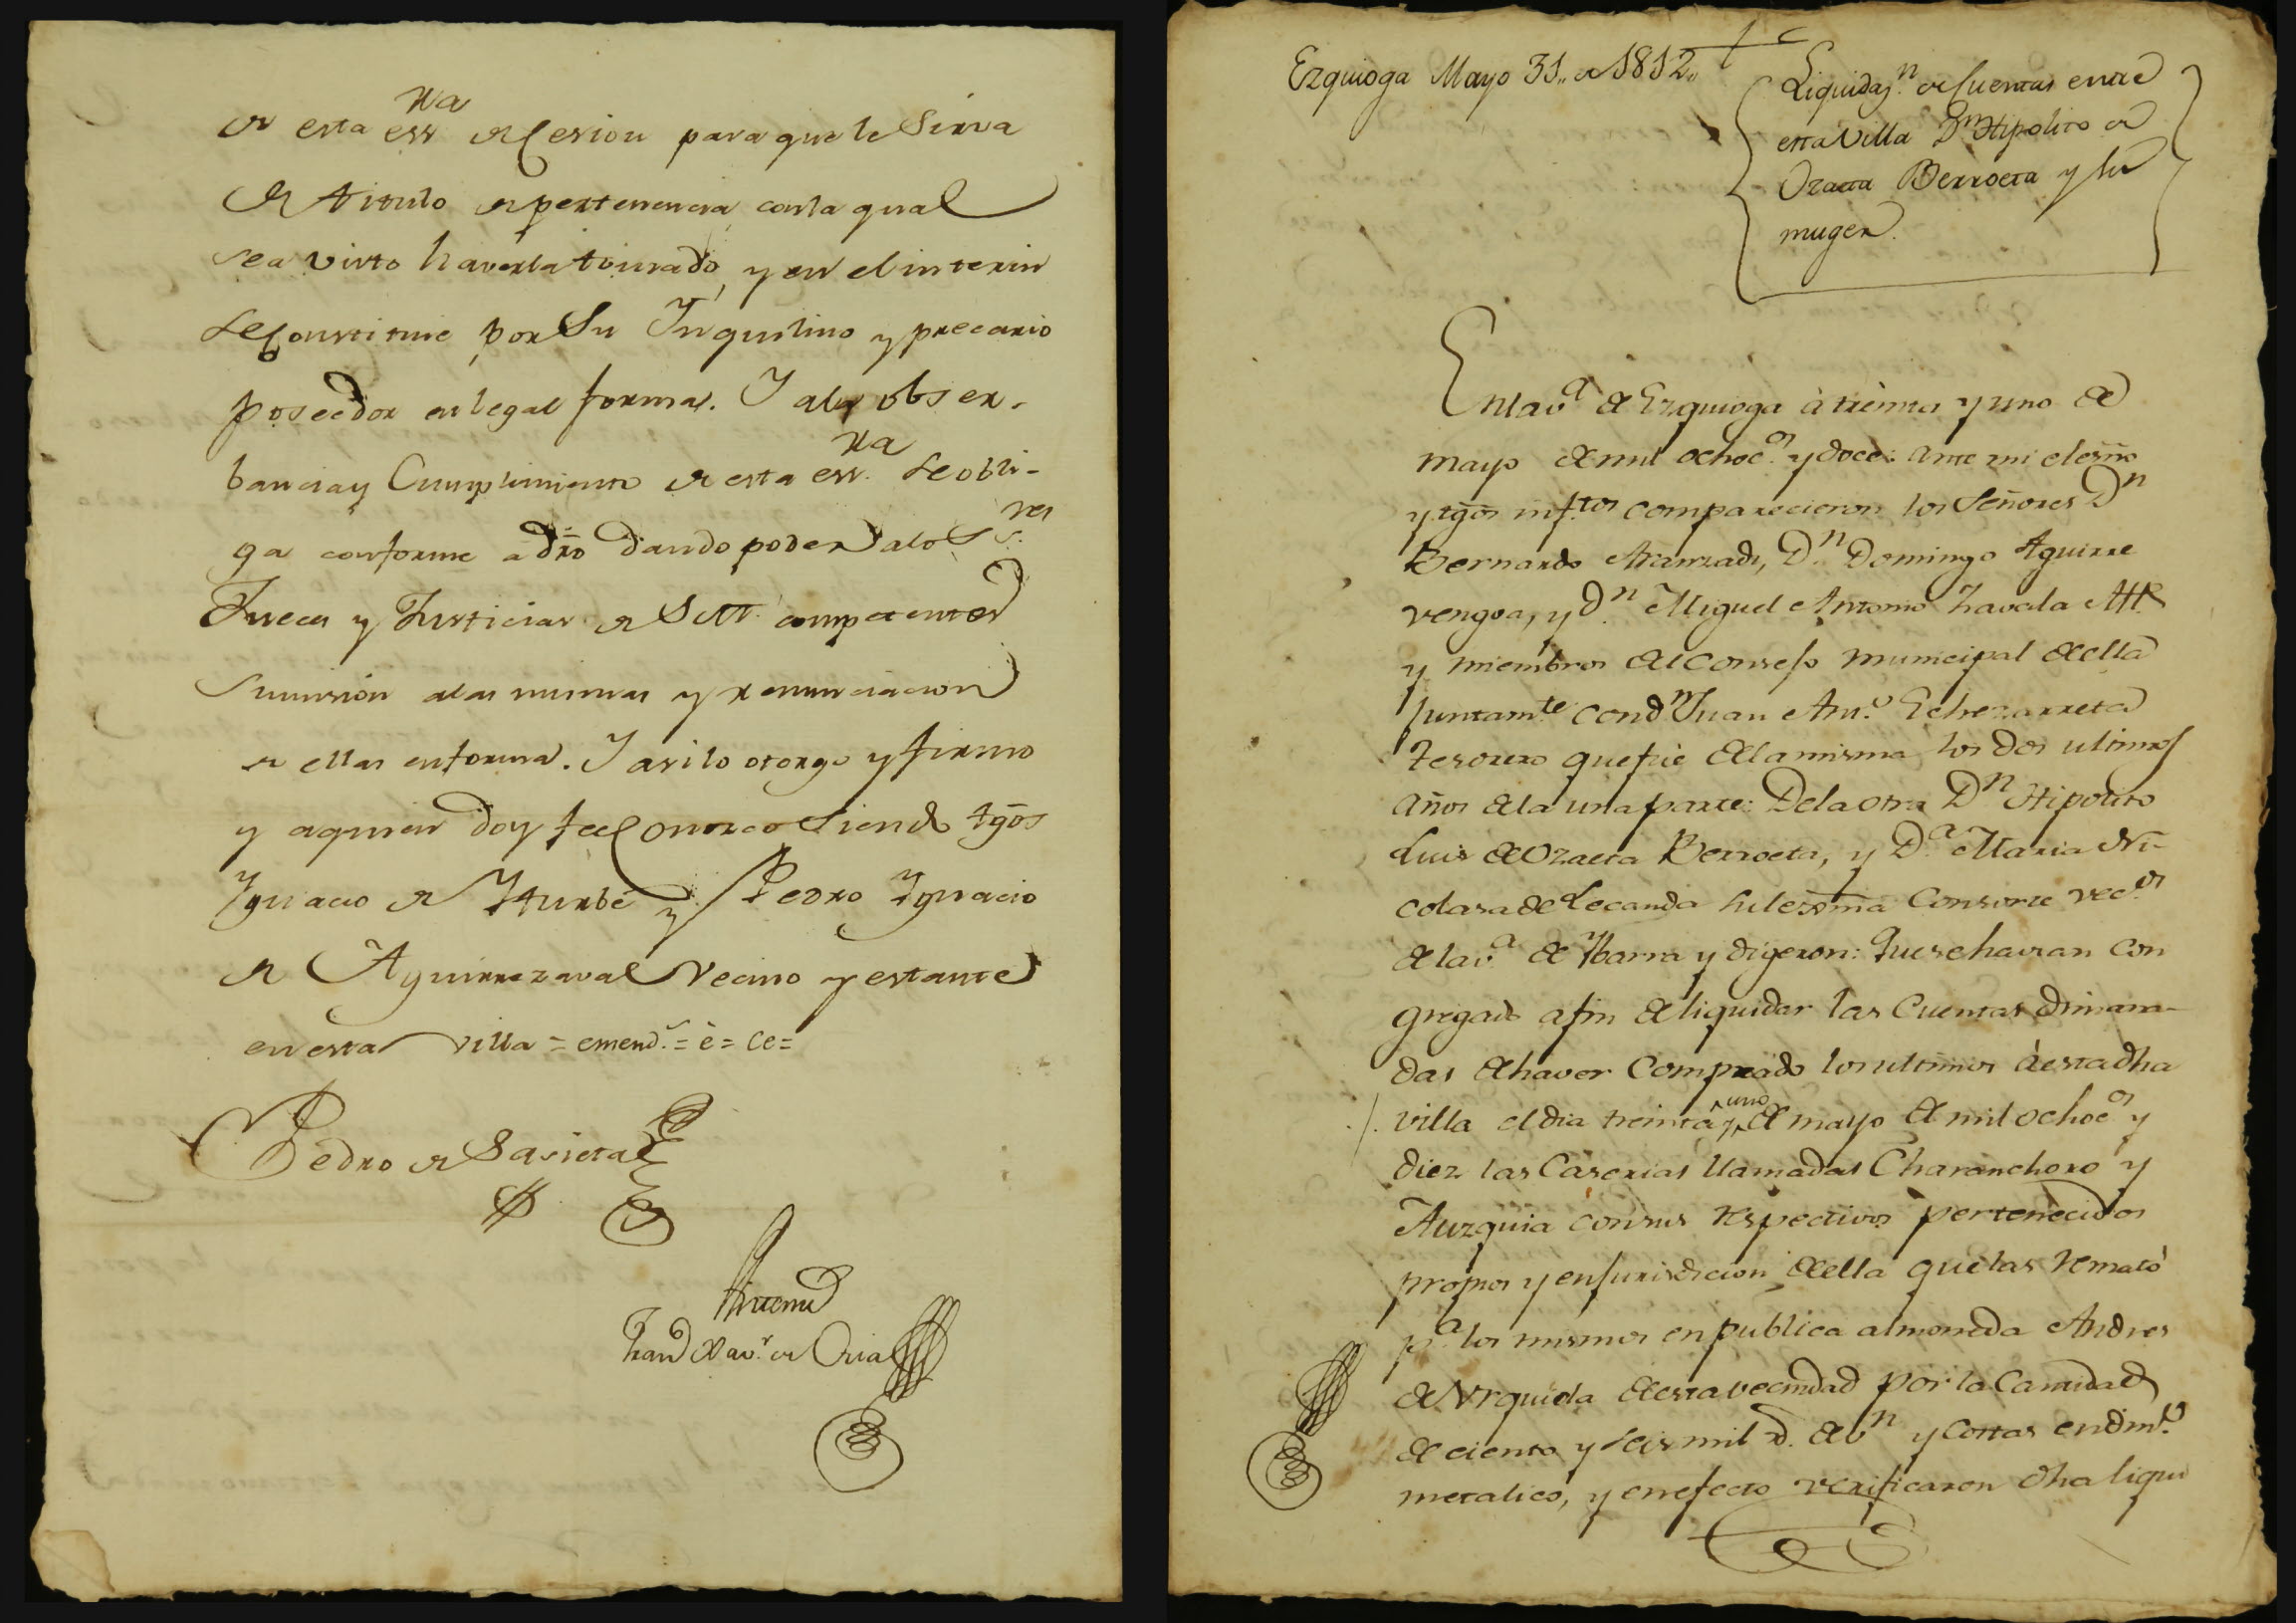 de esta essra de Cesion para que le Sirva
de titulo de pertenencia con la qual
sea visto haverla tomado, y en el interin
se Constituie por Su Inquilino y precario
poseedor en legal forma. I a la obser-
bancia y Cumplimiento de esta essra. se obli-
ga conforme a dro dando poder a los Sres
Jueces y Justicias de S.M. competentes
sumision a las mismas y renunciacion
de ellas en forma. I asi lo otorgo y firmo
y a quien doy fee Conozco Siendo tgos
Ygnacio de Yturbe y Pedro Ygnacio
de Aguirrezaval Vecino y estante
en esta villa = emendo = è = ce =
Pedro de Sasieta
Antemi
Juan Xavr de Oria
Ezquioga Mayo 31,, de 1812,,
Liquidazn de Cuentas entre
esta Villa Dn Hipolito de
Ozaeta Berroeta y su
muger.
En la va de Ezquioga à treinta y uno de
mayo de mil ochocs y doce: ante mi el esno
y tgos infrtos comparecieron los Señores Dn
Bernardo Aranzadi, Dn Domingo Aguirre
vengoa, y Dn Miguel Antonio Zavala
y miembros del Consejo municipal de ella
juntamte con dn Juan Anto Echezarreta
tesorero que fue de la misma los dos ultimos
años de la una parte: De la otra Dn Hipolito
Luis de Ozaeta Berroeta, y Da Maria Ni-
colasa de Lecanda su lexitima Consorte vecos
de la va de Ybarra y digeron: Que se havian con
gregado a fin de liquidar las Cuentas dimana-
das de haver Comprado los ultimos à esta dha
villa el dia treinta y uno de mayo de mil ochocs y
diez las Caserias llamadas Charanchoro y
Auzquia con sus respectivos pertenecidos
propios y en jurisdicion de ella que las remató
pa los mismos en publica almoneda Andres
de Urquiola de esta vecindad por la Cantidad
de ciento y seis mil rs. de vn y Costas en dinro
metalico, y en efecto verificaron dha liqui